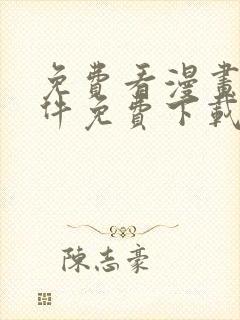 免費看漫畫
件免費下載
陳志豪